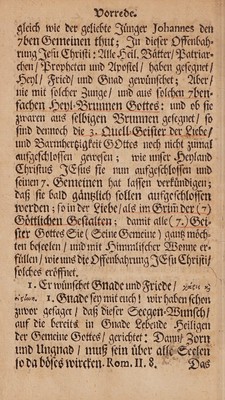 Vorrede.
gleich wie der geliebte Jünger Johannes den
7ben Gemeinen thut; In dieser Offenbah-
rung JEsu Christi: Alle Heil. Vätter/ Patriar-
chen/ Propheten und Apostel/ haben gesegnet/
Heyl/ Fried/ und Gnad gewünschet; Aber/
nie mit solcher Zunge/ und aus solchen 7ben-
fachen Heyl-Brunnen Gottes: und ob sie
zwaren aus selbigen Brunnen gesegnet/ so
sind dennoch die 3. Quell-Geister der Liebe/
und Barmhertzigkeit GOttes noch nicht zumal
aufgeschlossen gewesen; wie uns unser Heyland
Christus JEsus sie nun aufgeschlossen und
seinen 7. Gemeinen hat lassen verkündigen;
daß sie bald gäntzlich sollen aufgeschlossen
werden; so in der Liebe/ als im Grim̃ der (7)
Göttlichen Gestalten; damit alle (7.) Gei-
ster Gottes Sie (Seine Gemeine) gantz möch-
ten beseelen/ und mit Himmlischer Wonne er-
füllen/ wie uns die Offenbahrung JEsu Christi/
solches eröffnet.
1. Er wünschet Gnade und Friede/
1. Gnade sey mit euch! wir haben schon
zuvor gesagt/ daß dieser Seegen-Wunsch/
auf die bereits in Gnade Lebende Heiligen
der Gemeine Gottes/ gerichtet: Dann/ Zorn
und Ungnad/ muß sein über alle Seelen
so da böses wircken. Rom. II. 8. Das